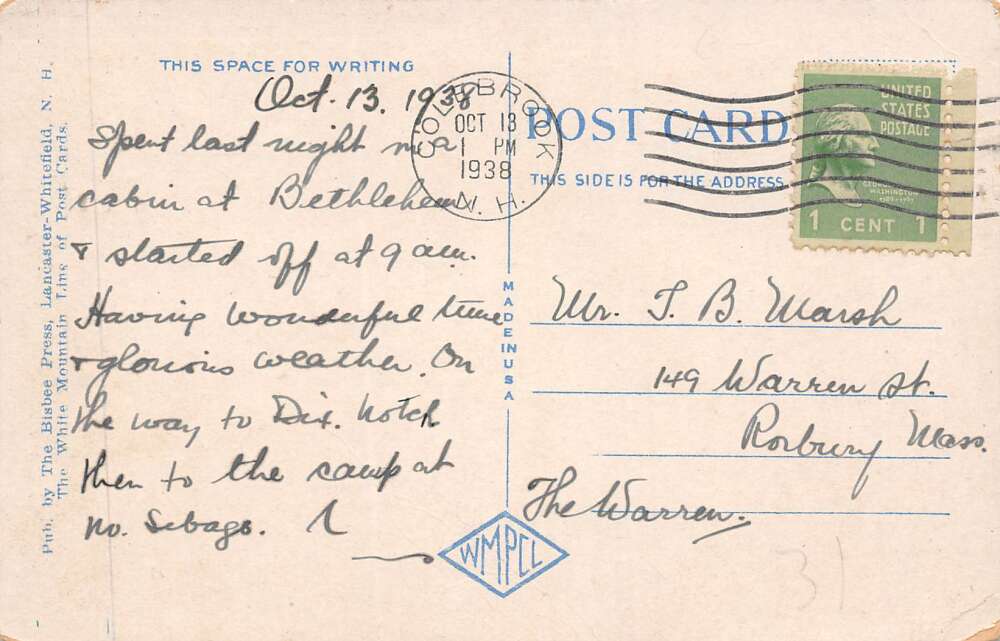 THIS SPACE FOR WRITING
Oct. 13. 1938
Spent last night in a
cabin at Bethlehem
& started off at 9 am.
Having wonderful time
& glorious weather. On
the way to Dix. Notch
then to the camp at
No. Sebago.
Pub. by The Bisbee Press, Lancaster-Whitefield, N. H.
The White Mountain Line of Post Cards.
COLEBROOK
OCT 13
1 PM
1938
N.H.
POST CARD
THIS SIDE IS FOR THE ADDRESS
UNITED
STATES
POSTAGE
GEORGE
WASHINGTON
1789-1797
1 CENT 1
MADE IN USA
Mr. T. B. Marsh
149 Warren St.
Roxbury Mass.
The Warren.
WMPCL
31